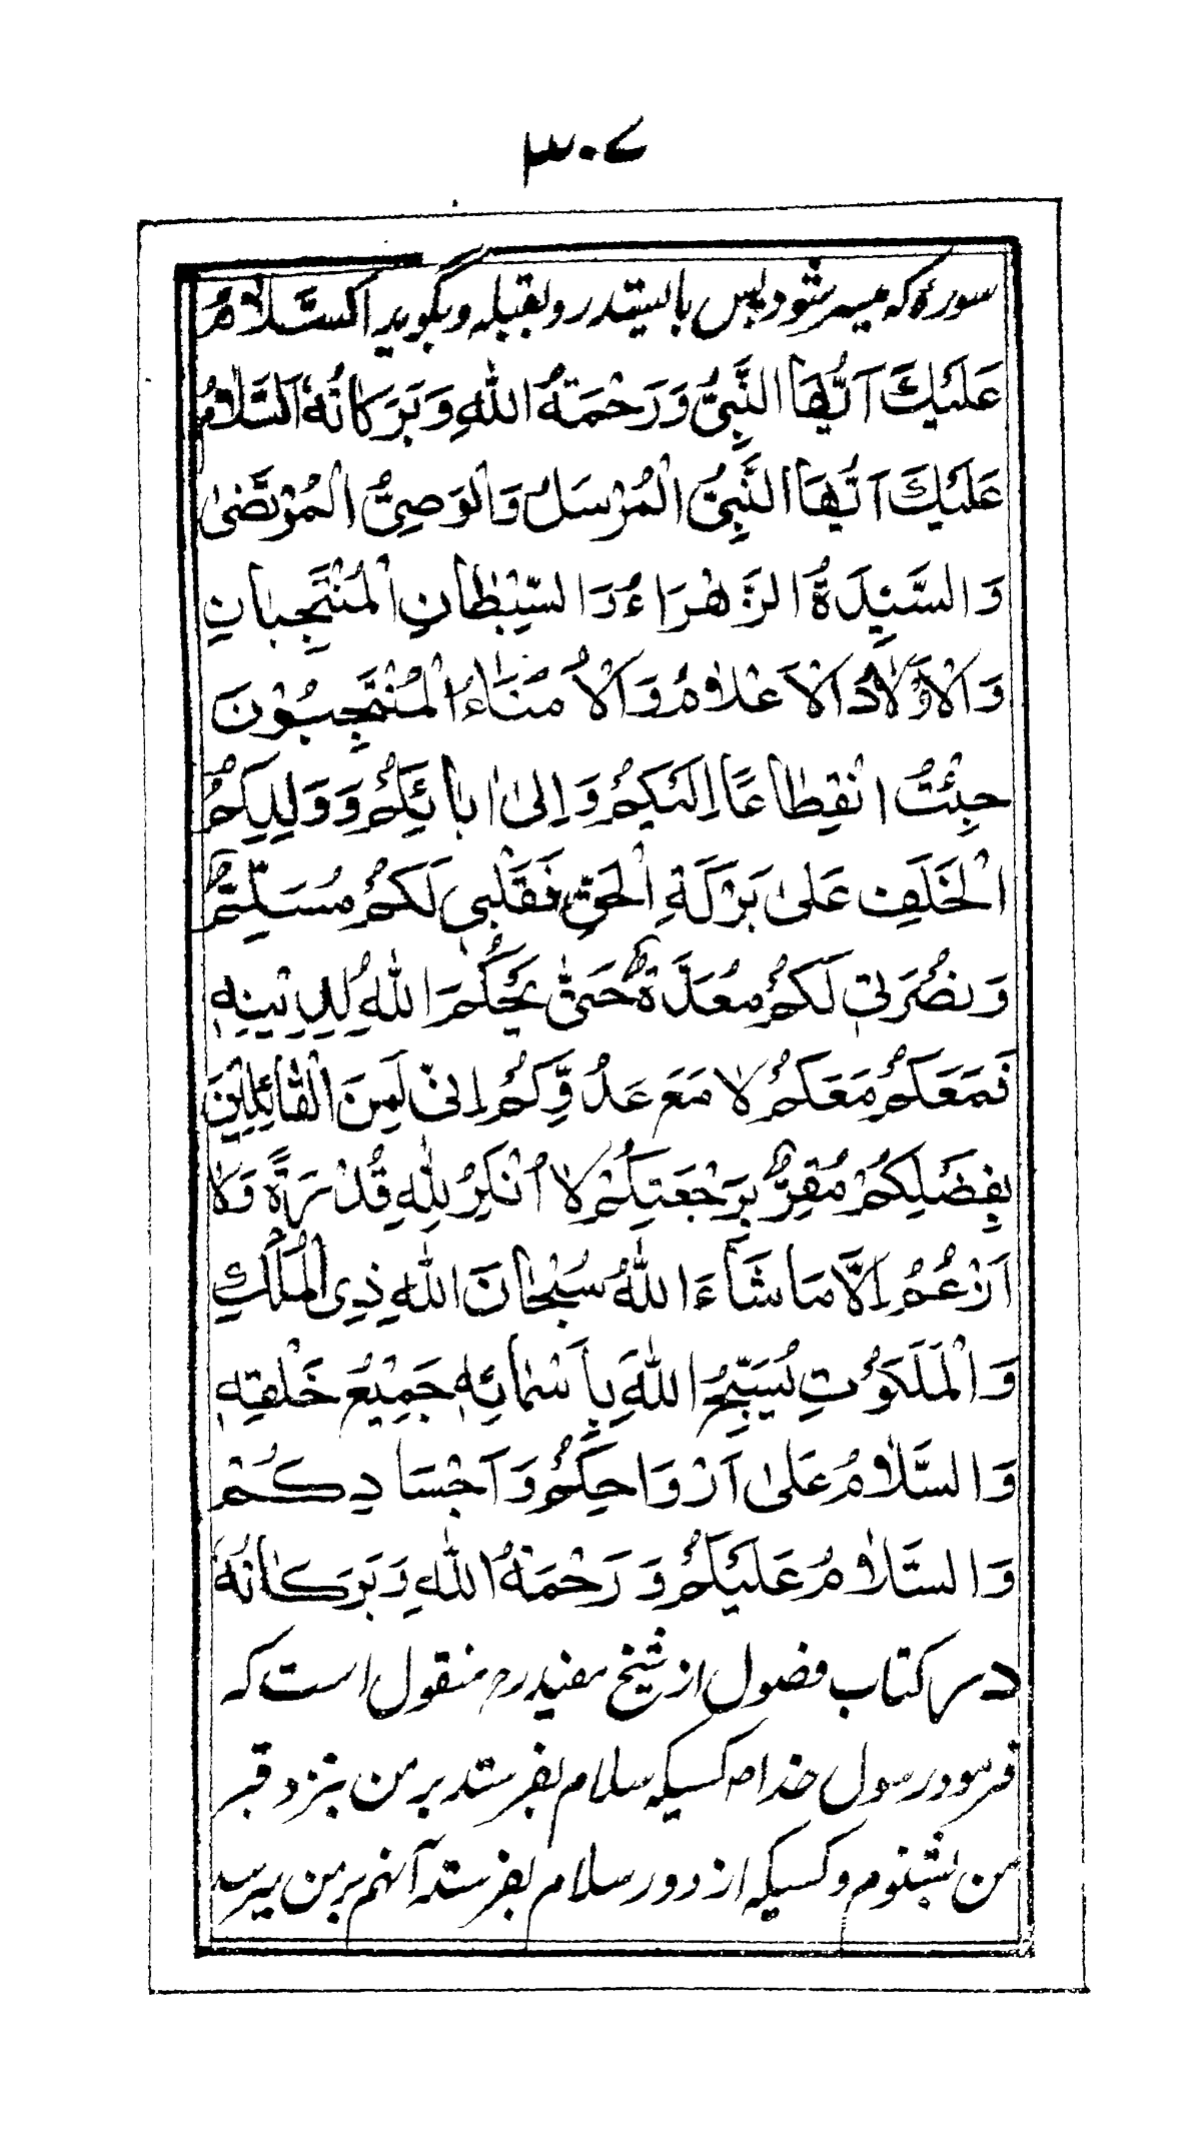 ۳۰۷
سوره که میسر شود پس بایستد رو بقبله و بگوید اَلسَّلَامُ
عَلَيْكَ اَيُّهَا النَّبِيُّ وَرَحْمَةُ اللهِ وَبَرَكَاتُهُ اَلسَّلَامُ
عَلَيْكَ اَيُّهَا النَّبِيُّ الْمُرْسَلُ وَالْوَصِيُّ الْمُرْتَضىٰ
وَالسَّيِّدَةُ الزَّهْرَاءُ وَالسِّبْطَانِ الْمُنْتَجَبَانِ
وَالْاَوْلَادُ الْاَعْلَامُ وَالْاُمَنَاءُ الْمُنْتَجَبُوْنَ
جِئْتُ انْقِطَاعًا اِلَيْكُمْ وَاِلىٰ اٰبَائِكُمْ وَوَلَدِكُمُ
الْخَلَفِ عَلىٰ بَرَكَةِ الْحَقِّ فَقَلْبِيْ لَكُمْ مُسَلِّمٌ
وَنُصْرَتِيْ لَكُمْ مُعَدَّةٌ حَتّٰى يَحْكُمَ اللهُ لِدِيْنِهٖ
فَمَعَكُمْ مَعَكُمْ لَا مَعَ عَدُوِّكُمْ اِنِّيْ لَمِنَ الْقَائِلِيْنَ
بِفَضْلِكُمْ مُقِرٌّ بِرَجْعَتِكُمْ لَا اُنْكِرُ لِلّٰهِ قُدْرَةً وَلَا
اَزْعُمُ اِلَّا مَا شَاءَ اللهُ سُبْحَانَ اللهِ ذِي الْمُلْكِ
وَالْمَلَكُوْتِ يُسَبِّحُ اللهَ بِاَسْمَائِهٖ جَمِيْعُ خَلْقِهٖ
وَالسَّلَامُ عَلىٰ اَرْوَاحِكُمْ وَاَجْسَادِكُمْ
وَالسَّلَامُ عَلَيْكُمْ وَرَحْمَةُ اللهِ وَبَرَكَاتُهُ
در کتاب فصول از شیخ مفید ره منقول است که
فرمود رسول خدا ص کسیکه سلام بفرستد بر من بنزد قبر
من بشنوم و کسیکه از دور سلام بفرستد آنهم بر من میرسد